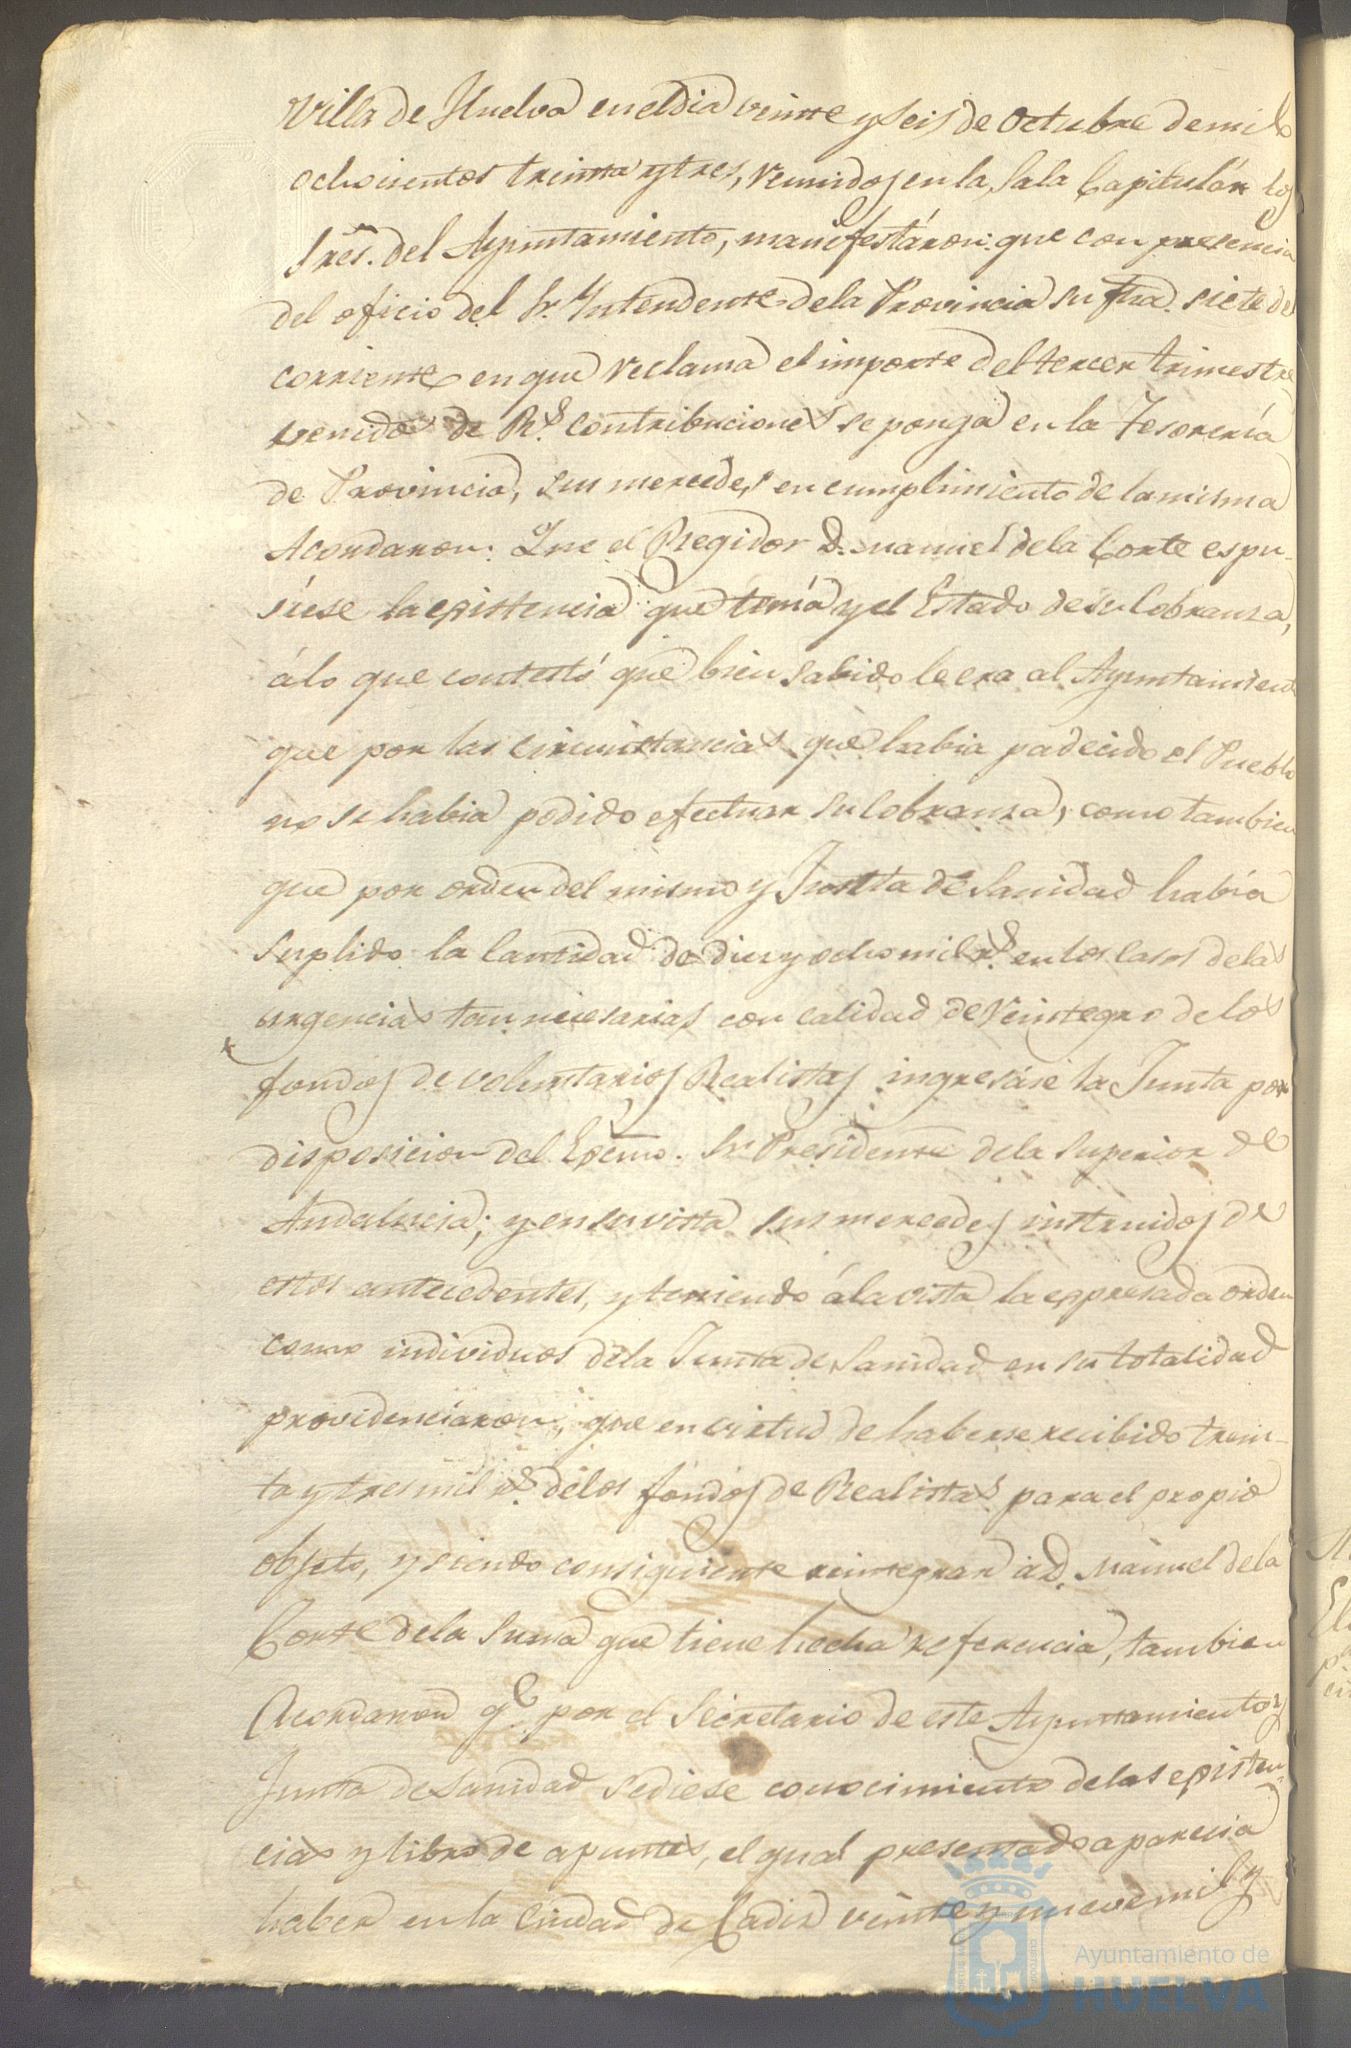 Villa de Huelva en el dia veinte y seis de Octubre de mil
ochocientos treinta y tres, reunidos en la Sala Capitulár los
Sres. del Ayuntamiento, manifestáron: que con presencia
del oficio del Sr. Yntendente de la Provincia su fha. siete del
corriente en que reclama el importe del tercer trimestre
vencido de Rs. contribuciones se ponga en la Tesorería
de Provincia, sus mercedes en cumplimiento de la misma
Acordaron: Que el Regidor D. Manuel de la Corte espu-
siese la epistencia que tenía y el Estado de su Cobranza,
á lo que contestó que bien sabido le era al Ayuntamiento
que por las circunstancias que habia padecido el Pueblo
no se habia podido efectuar su Cobranza, como tambien
que por orden del mismo y Junta de Sanidad había
suplido la Cantidad de diez y ocho mil rs. en los casos de las
urgencias tan necesarias con calidad de reintegro de los
fondos de voluntarios Realistas ingresáse la Junta por
disposicion del Epcmo. Sr. Presidente de la Superior de
Andalucia; y en su vista sus mercedes instruidos de
estos antecedentes, y teniendo á la vista la eppresada orden
como individuos de la Junta de Sanidad en su totalidad
providenciaron, que en virtud de haberse recibido trein-
ta y tres mil rs. de los fondos de Realistas para el propio
objeto, y siendo consiguiente reintegrar a D. Manuel de la
Corte de la Suma que tiene hecha referencia, tambien
Acordaron qe. por el Secretario de este Ayuntamiento y
Junta de Sanidad se diese conocimiento de las episten-
cias y libro de apuntes, el qual presentado aparecia
haber en la Ciudad de Cadiz veinte y nueve mil y
Ayuntamiento de
HUELVA